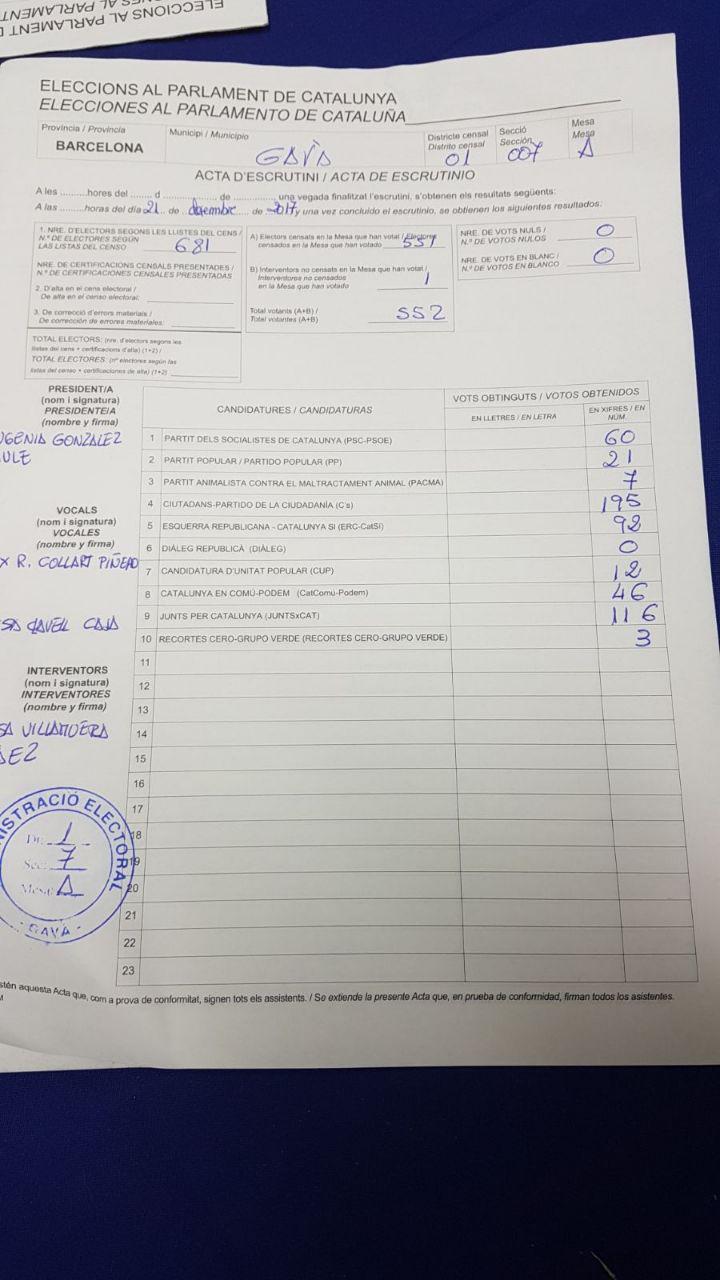 ELECCIONS AL PARLAMENT
ELECCIONS AL PARLAMENT DE CATALUNYA
ELECCIONES AL PARLAMENTO DE CATALUÑA
Provincia / Provincia
BARCELONA
Municipi / Municipio
GAVÀ
Districte censal
Distrito censal
01
Secció
Sección
007
Mesa
Mesa
A
ACTA D'ESCRUTINI / ACTA DE ESCRUTINIO
A les ..........hores del ....... d ...................... de ............... una vegada finalitzat l'escrutini, s'obtenen els resultats següents:
A las ........horas del día 21 de diciembre de 2017 y una vez concluido el escrutinio, se obtienen los siguientes resultados:
1. NRE. D'ELECTORS SEGONS LES LLISTES DEL CENS /
N.º DE ELECTORES SEGÚN
LAS LISTAS DEL CENSO 681
NRE. DE CERTIFICACIONS CENSALS PRESENTADES /
N.º DE CERTIFICACIONES CENSALES PRESENTADAS
2. D'alta en el cens electoral /
De alta en el censo electoral:
3. De correcció d'errors materials /
De corrección de errores materiales:
TOTAL ELECTORS: (nre. d'electors segons les
llistes del cens + certificacions d'alta) (1+2) /
TOTAL ELECTORES: (nº electores según las
listas del censo + certificaciones de alta) (1+2)
A) Electors censats en la Mesa que han votat / Electores
censados en la Mesa que han votado 551
B) Interventors no censats en la Mesa que han votat /
Interventores no censados
en la Mesa que han votado 1
Total votants (A+B) /
Total votantes (A+B) 552
NRE. DE VOTS NULS /
N.º DE VOTOS NULOS 0
NRE. DE VOTS EN BLANC /
N.º DE VOTOS EN BLANCO 0
PRESIDENT/A
(nom i signatura)
PRESIDENTE/A
(nombre y firma)
GONZALEZ
ULE
VOCALS
(nom i signatura)
VOCALES
(nombre y firma)
X R. COLLART PIÑERO
INTERVENTORS
(nom i signatura)
INTERVENTORES
(nombre y firma)
CANDIDATURES / CANDIDATURAS
VOTS OBTINGUTS / VOTOS OBTENIDOS
EN LLETRES / EN LETRA
EN XIFRES / EN NÚM.
1 PARTIT DELS SOCIALISTES DE CATALUNYA (PSC-PSOE) 60
2 PARTIT POPULAR / PARTIDO POPULAR (PP) 21
3 PARTIT ANIMALISTA CONTRA EL MALTRACTAMENT ANIMAL (PACMA) 7
4 CIUTADANS-PARTIDO DE LA CIUDADANÍA (C's) 195
5 ESQUERRA REPUBLICANA - CATALUNYA SÍ (ERC-CatSí) 92
6 DIÀLEG REPUBLICÀ (DIÀLEG) 0
7 CANDIDATURA D'UNITAT POPULAR (CUP) 12
8 CATALUNYA EN COMÚ-PODEM (CatComú-Podem) 46
9 JUNTS PER CATALUNYA (JUNTSxCAT) 116
10 RECORTES CERO-GRUPO VERDE (RECORTES CERO-GRUPO VERDE) 3
11
12
13
14
15
16
17
18
19
20
21
22
23
ISTRACIÓ ELECTORAL
Dte. 1
Sec. 7
Mesa A
- GAVÀ -
stén aquesta Acta que, com a prova de conformitat, signen tots els assistents. / Se extiende la presente Acta que, en prueba de conformidad, firman todos los asistentes.